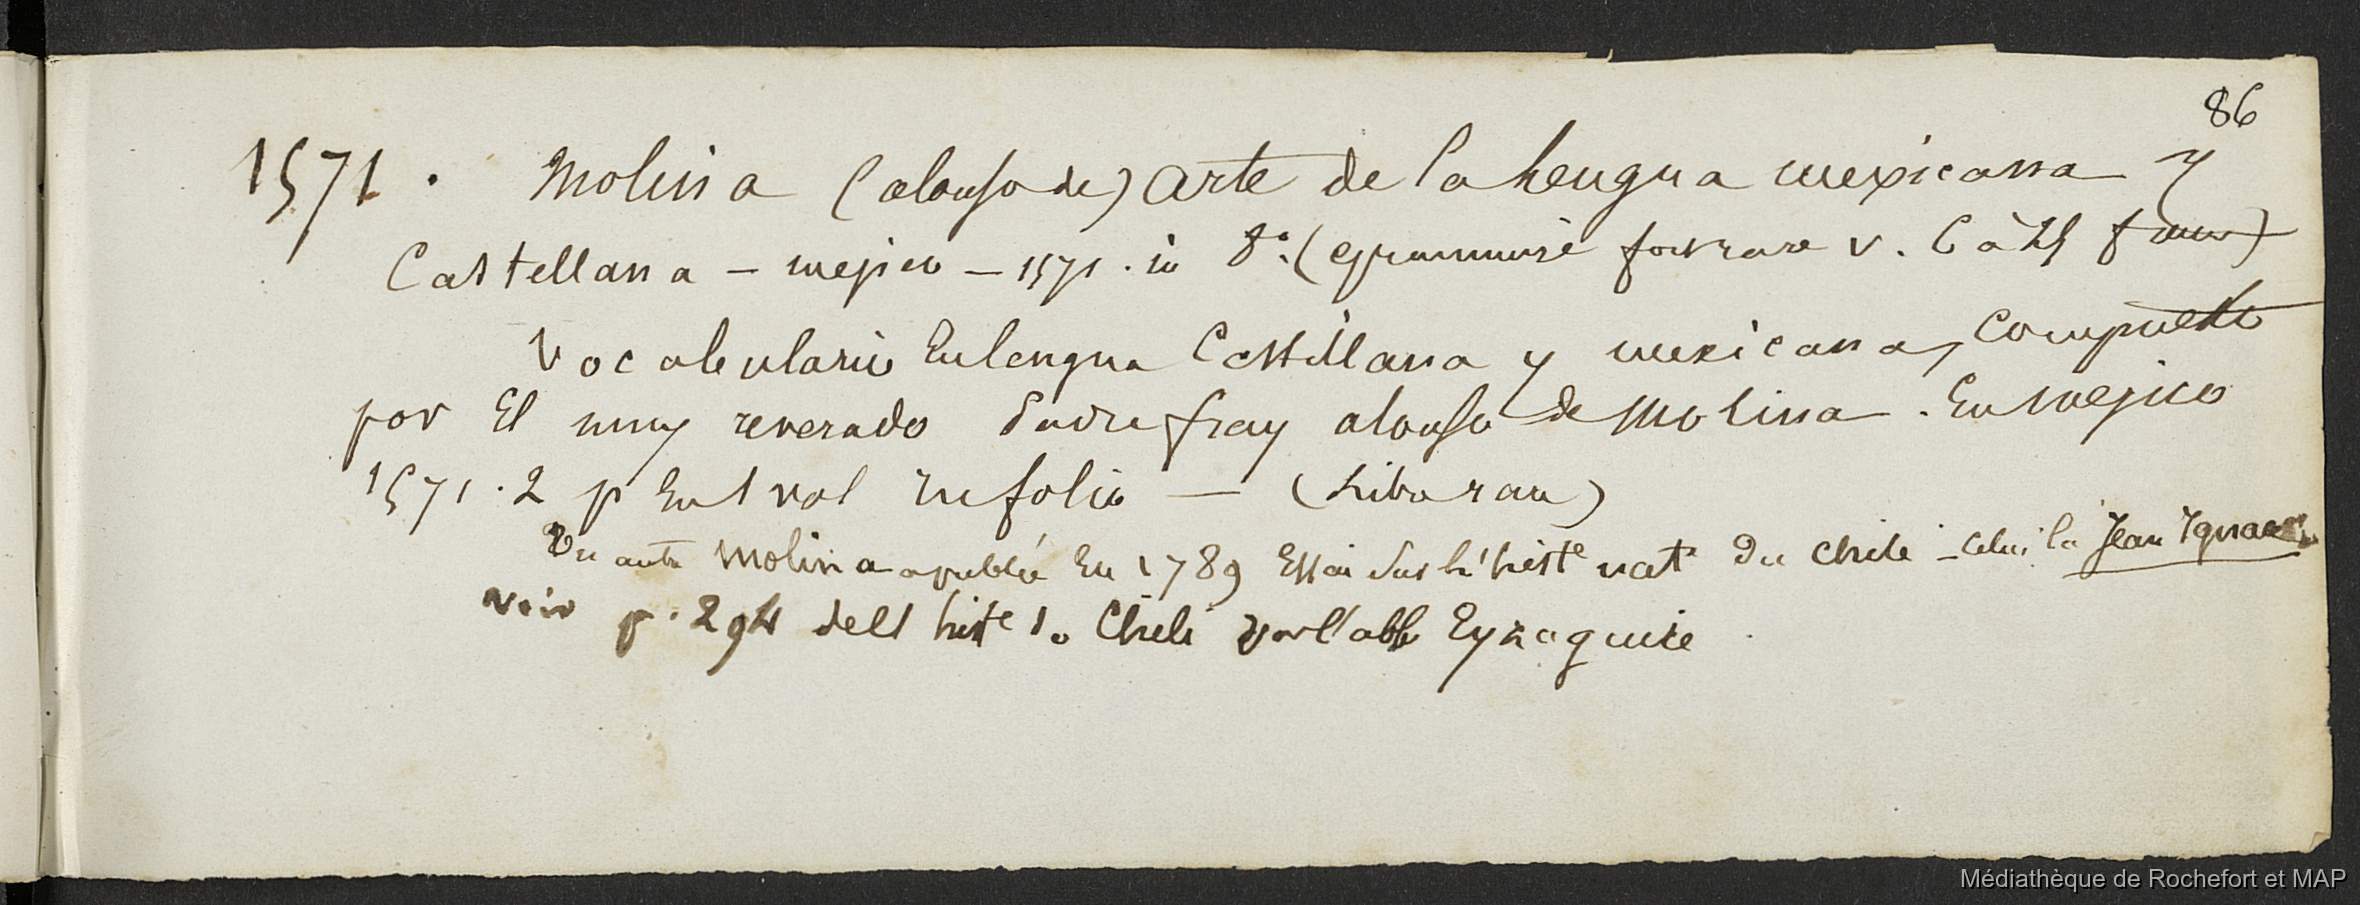 86
1571 . Molina (alonso de) Arte de la lengua mexicana y
Castellana — mejico — 1571 . in 8°. (grammaire fort rare v.
Vocabulario En lengua Castillana y mexicana, Compuesto
por El muy reverado Padre fray alonso de Molina . En Mejico
1571 . 2 p En 1 vol In folio —
Un autre Molina a publié En 1789 Essai sur l'histe nat du Chili - celui la Jean Ignace
voir p. 294 de l'histe du Chili par l'abbé Eyzaguire
Médiathèque de Rochefort et MAP